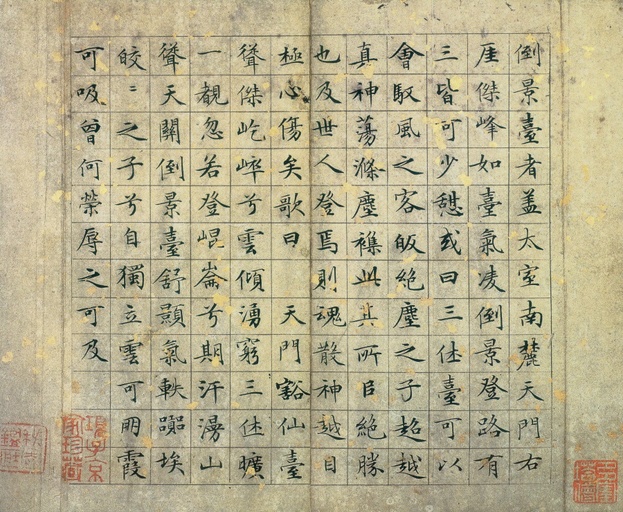 倒景臺者蓋太室南麓天門右
厓傑峰如臺氣凌倒景登路有
三皆可少憇或曰三休臺可以
會馭風之客皈絕塵之子超越
真神蕩滌塵襍此其所㠯絕勝
也及世人登焉則魂散神越目
極心傷矣歌曰 天門豁仙臺
聳傑屹崒兮雲傾湧窮三休曠
一覩忽若登崐崙兮期汗漫山
聳天關倒景臺舒顥氣軼囂埃
皎〻之子兮自獨立雲可朋霞
可吸曾何榮辱之可及
項子京
家珍藏